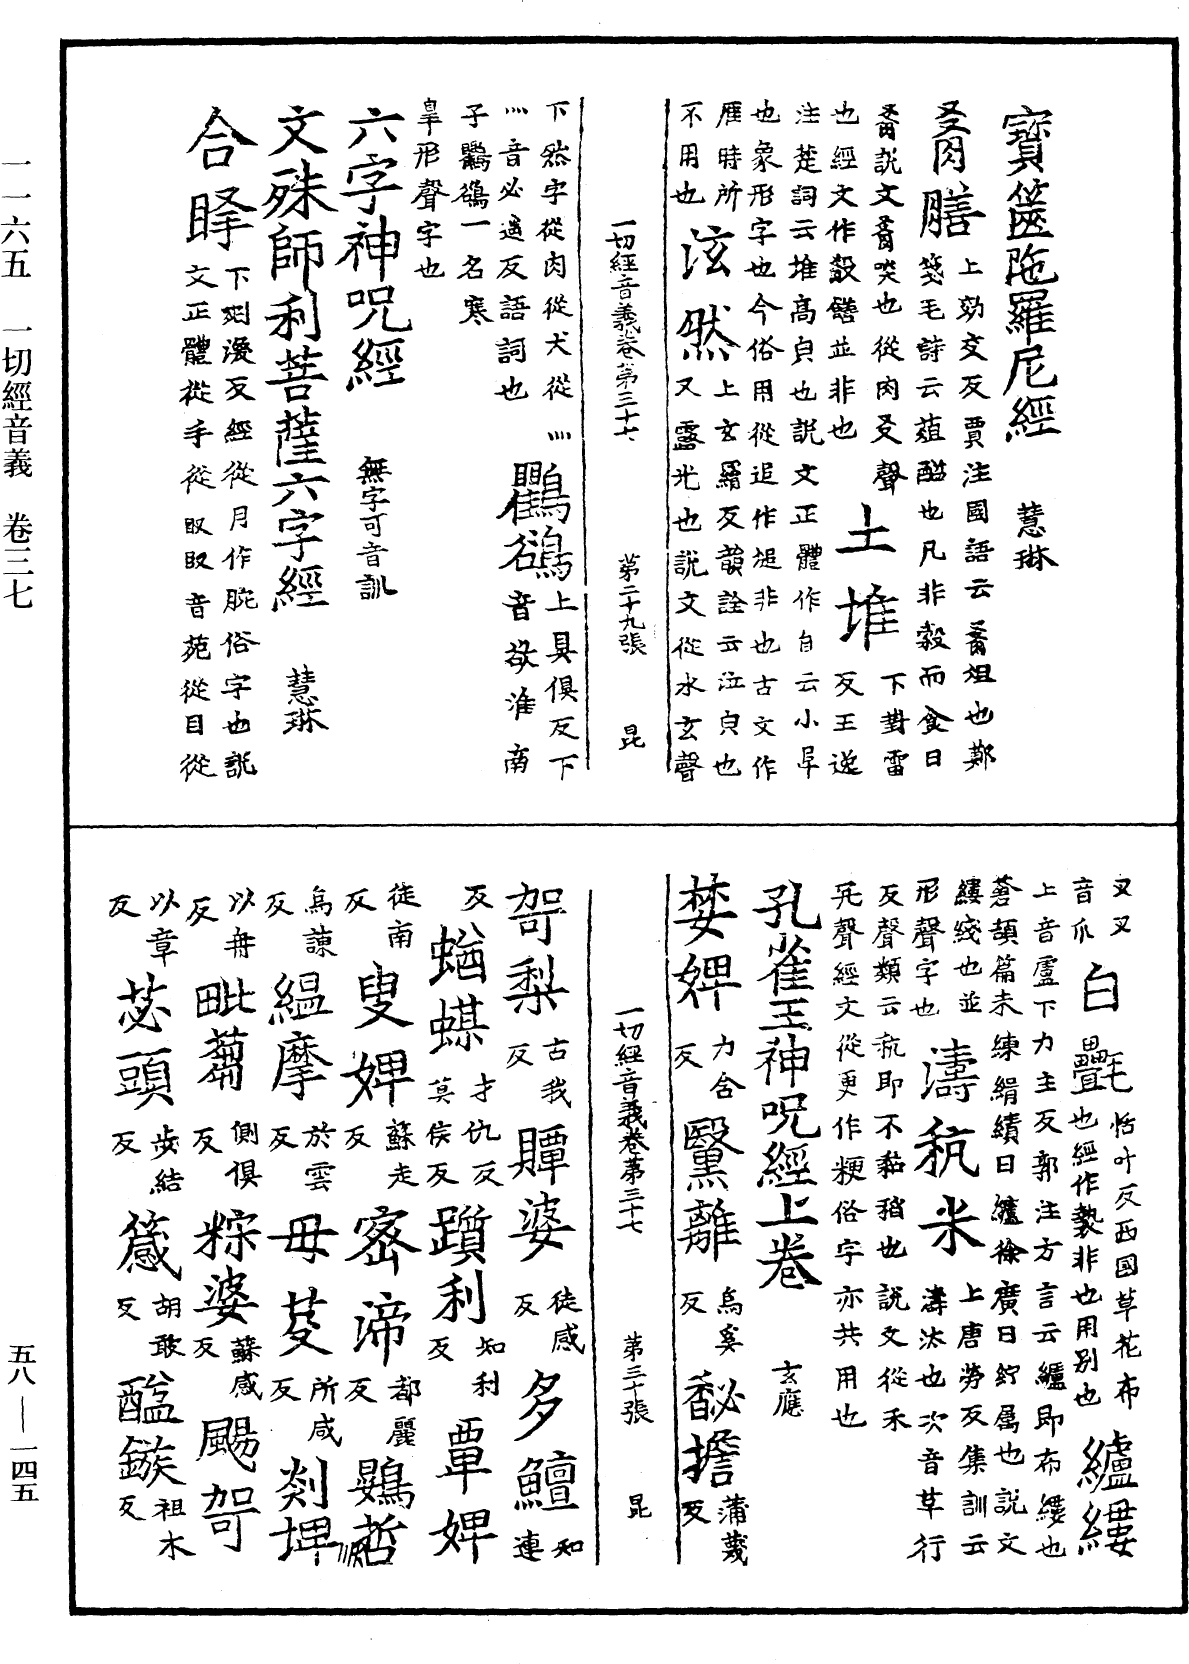 一一六五　一切經音義　卷三七
五八—一四五
寶篋陁羅尼經　慧琳
肴膳上効交反賈注國語云肴俎也鄭
箋毛詩云葅醢也凡非穀而食曰
肴說文肴啖也從肉爻聲
也經文作餚饍並非也　土堆下對雷反王逸
注楚詞云堆高皃也說文正體作𠂤云小阜
也象形字也今俗用從追作塠非也古文作
𨺅時所不用也　泫然上玄羂反韻詮云泣皃也
又露光也說文從水玄聲
一切經音義卷第三十七　第二十九張　昆
下然字從肉從犬從灬
灬音必遙反語詞也　鸜鵒上具俱反下音欲淮南
子鸜鵒一名寒
皐形聲字也
六字神呪經　無字可音訓
文殊師利菩薩六字經　慧琳
合㫼下剜漫反經從月作腕俗字也說
文正體從手從㕡㕡音苑從目從
叉叉
音爪　白㲲恬叶反西國草花布也經作㲲非也用別也　纑縷
上音盧下力主反郭注方言云纑即布縷也
蒼頡篇未練絹績曰纑徐廣曰紵屬也說文
縷綫也並形聲字也　濤秔米上唐勞反集訓云
濤汰也次音草行
反聲類云秔即不黏稻也說文從禾
亢聲經文從更作粳俗字亦共用也
孔雀王神呪經上卷　玄應
婪婢力含反　黳離烏奚反　馝擔蒲蔑反
一切經音義卷第三十七　第三十張　昆
哿梨古我反　贉婆徒感反　多鱣知連
反　蝤蟱才仇反莫侯反　躓利知利反　覃婢
徒南反　叟婢蘇走反　密渧都麗反　鶪哲
烏諫反　緼摩於雲反　毋芟所咸反　剡埤
以冉反　毗蒭側俱反　粽婆蘇感反　颺哿
以章反　苾頭步結反　䉞胡敢反　醠鏃祖木反